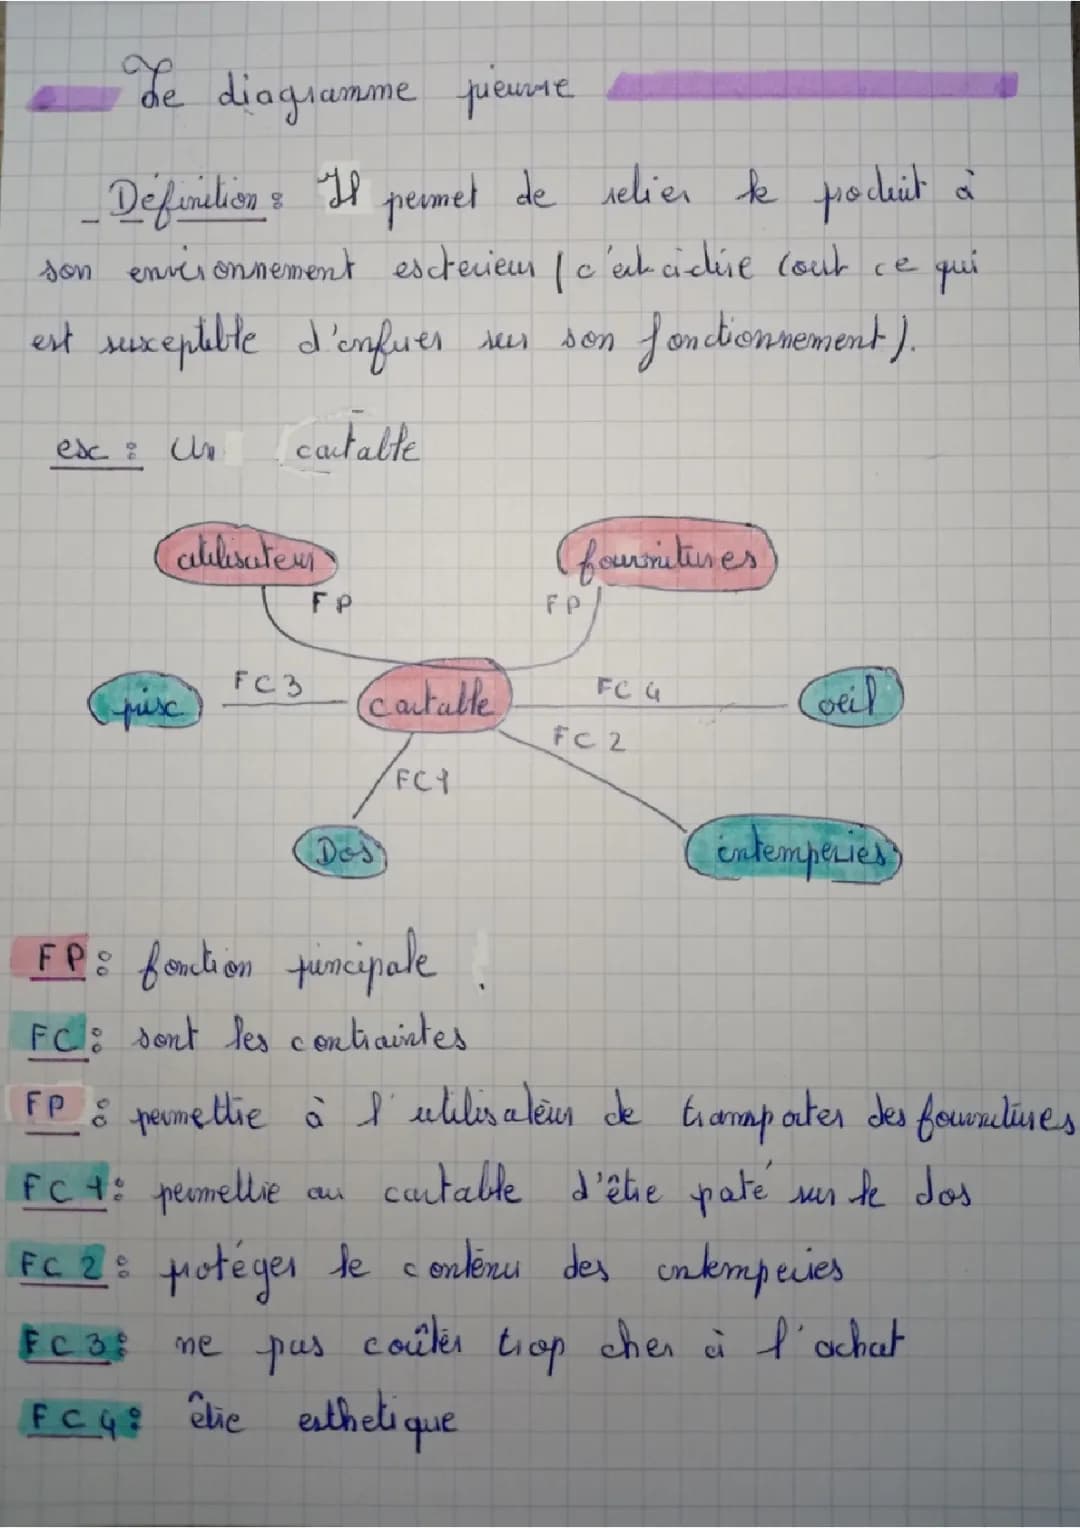 Le diagramme pieuvre
- Définition : Il permet de relier le poduit à
son environnement exterieur ( c'est à dire tout ce qui
est suxeptible d'influer sur son fonctionnement ).
ex : Un cartable
utilisateur
fournitures
FP
FP
prix
FC3
cartable
FC4
oeil
FC2
FC1
Dos
intemperies
FP : fonction principale
FC : sont les contraintes
FP : permettre à l'utilisateur de transporter des fournitures
FC1 : permettre au cartable d'être porté sur le dos
FC2 : protéger le contenu des intemperies
FC3 : ne pas coûter trop cher à l'achat
FC4 : être esthetique